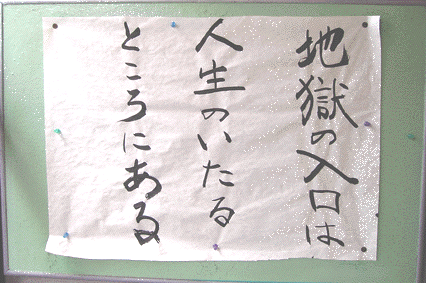 地獄の入口は
人生のいたる
ところにある